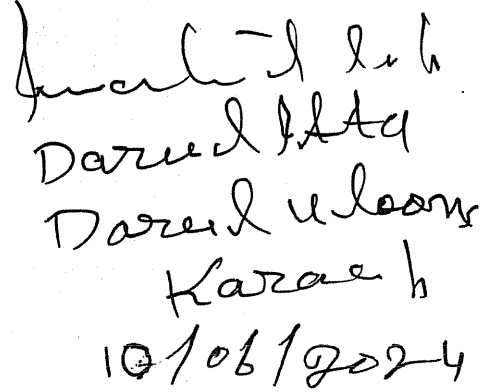 Darul Ifta
Darul uloom
Karachi
10/06/2024